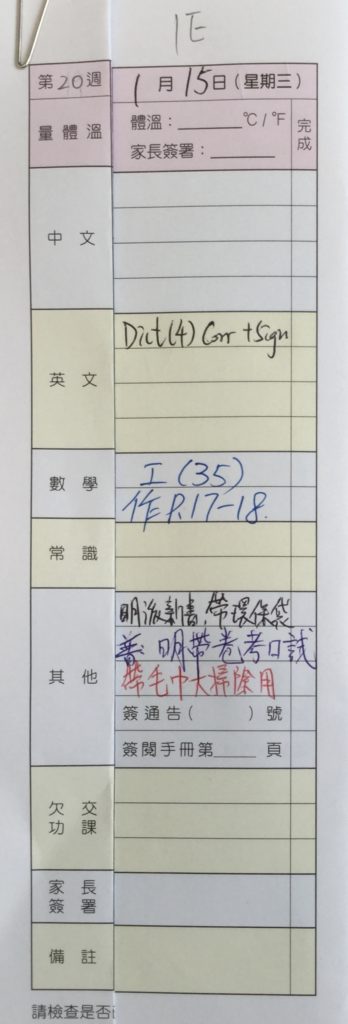 1E
第20週 1月15日(星期三)
量體溫 體溫:______°C/°F 完成
家長簽署:______
中文
英文 Dict(4) Corr +Sign
數學 工(35)
作P.17-18.
常識
其他 明派新書,帶環保袋
普:明帶卷考口試
帶毛巾大掃除用
簽通告( )號
簽閱手冊第____頁
欠交功課
家長簽署
備註
請檢查是否